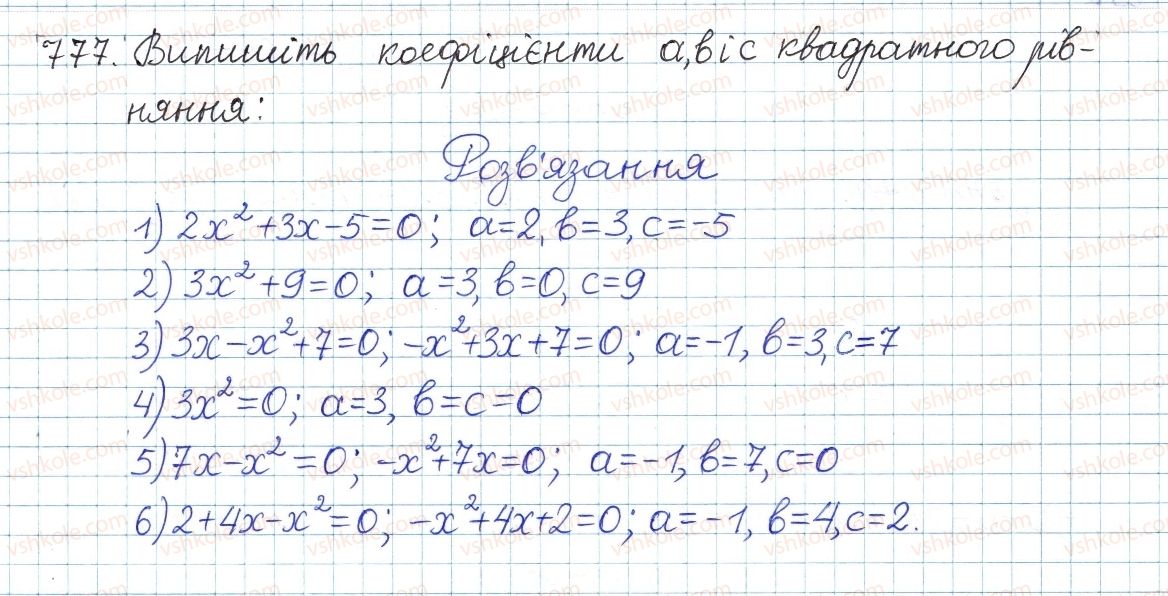 777. Випишіть коефіцієнти а,в і с квадратного рів-
няння:
Розв'язання
1) 2x²+3x-5=0; a=2, в=3, c=-5
2) 3x²+9=0; a=3, в=0, c=9
3) 3x-x²+7=0; -x²+3x+7=0; a=-1, в=3, c=7
4) 3x²=0; a=3, в=c=0
5) 7x-x²=0; -x²+7x=0; a=-1, в=7, c=0
6) 2+4x-x²=0; -x²+4x+2=0; a=-1, в=4, c=2.